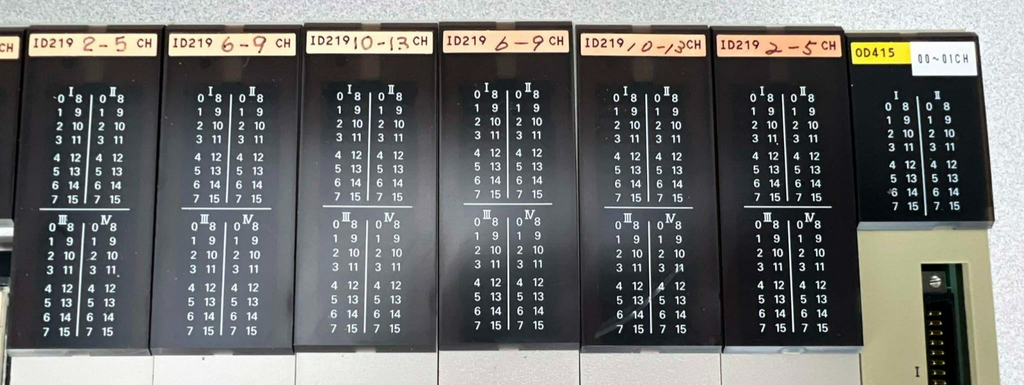 CH
ID219 2-5 CH
I II
0 8 0 8
1 9 1 9
2 10 2 10
3 11 3 11
4 12 4 12
5 13 5 13
6 14 6 14
7 15 7 15
III IV
0 8 0 8
1 9 1 9
2 10 2 10
3 11 3 11
4 12 4 12
5 13 5 13
6 14 6 14
7 15 7 15
ID219 6-9 CH
I II
0 8 0 8
1 9 1 9
2 10 2 10
3 11 3 11
4 12 4 12
5 13 5 13
6 14 6 14
7 15 7 15
III IV
0 8 0 8
1 9 1 9
2 10 2 10
3 11 3 11
4 12 4 12
5 13 5 13
6 14 6 14
7 15 7 15
ID219 10-13 CH
I II
0 8 0 8
1 9 1 9
2 10 2 10
3 11 3 11
4 12 4 12
5 13 5 13
6 14 6 14
7 15 7 15
III IV
0 8 0 8
1 9 1 9
2 10 2 10
3 11 3 11
4 12 4 12
5 13 5 13
6 14 6 14
7 15 7 15
ID219 6-9 CH
I II
0 8 0 8
1 9 1 9
2 10 2 10
3 11 3 11
4 12 4 12
5 13 5 13
6 14 6 14
7 15 7 15
III IV
0 8 0 8
1 9 1 9
2 10 2 10
3 11 3 11
4 12 4 12
5 13 5 13
6 14 6 14
7 15 7 15
ID219 10-13 CH
I II
0 8 0 8
1 9 1 9
2 10 2 10
3 11 3 11
4 12 4 12
5 13 5 13
6 14 6 14
7 15 7 15
III IV
0 8 0 8
1 9 1 9
2 10 2 10
3 11 3 11
4 12 4 12
5 13 5 13
6 14 6 14
7 15 7 15
ID219 2-5 CH
I II
0 8 0 8
1 9 1 9
2 10 2 10
3 11 3 11
4 12 4 12
5 13 5 13
6 14 6 14
7 15 7 15
III IV
0 8 0 8
1 9 1 9
2 10 2 10
3 11 3 11
4 12 4 12
5 13 5 13
6 14 6 14
7 15 7 15
OD415 00~01CH
I II
0 8 0 8
1 9 1 9
2 10 2 10
3 11 3 11
4 12 4 12
5 13 5 13
6 14 6 14
7 15 7 15
I